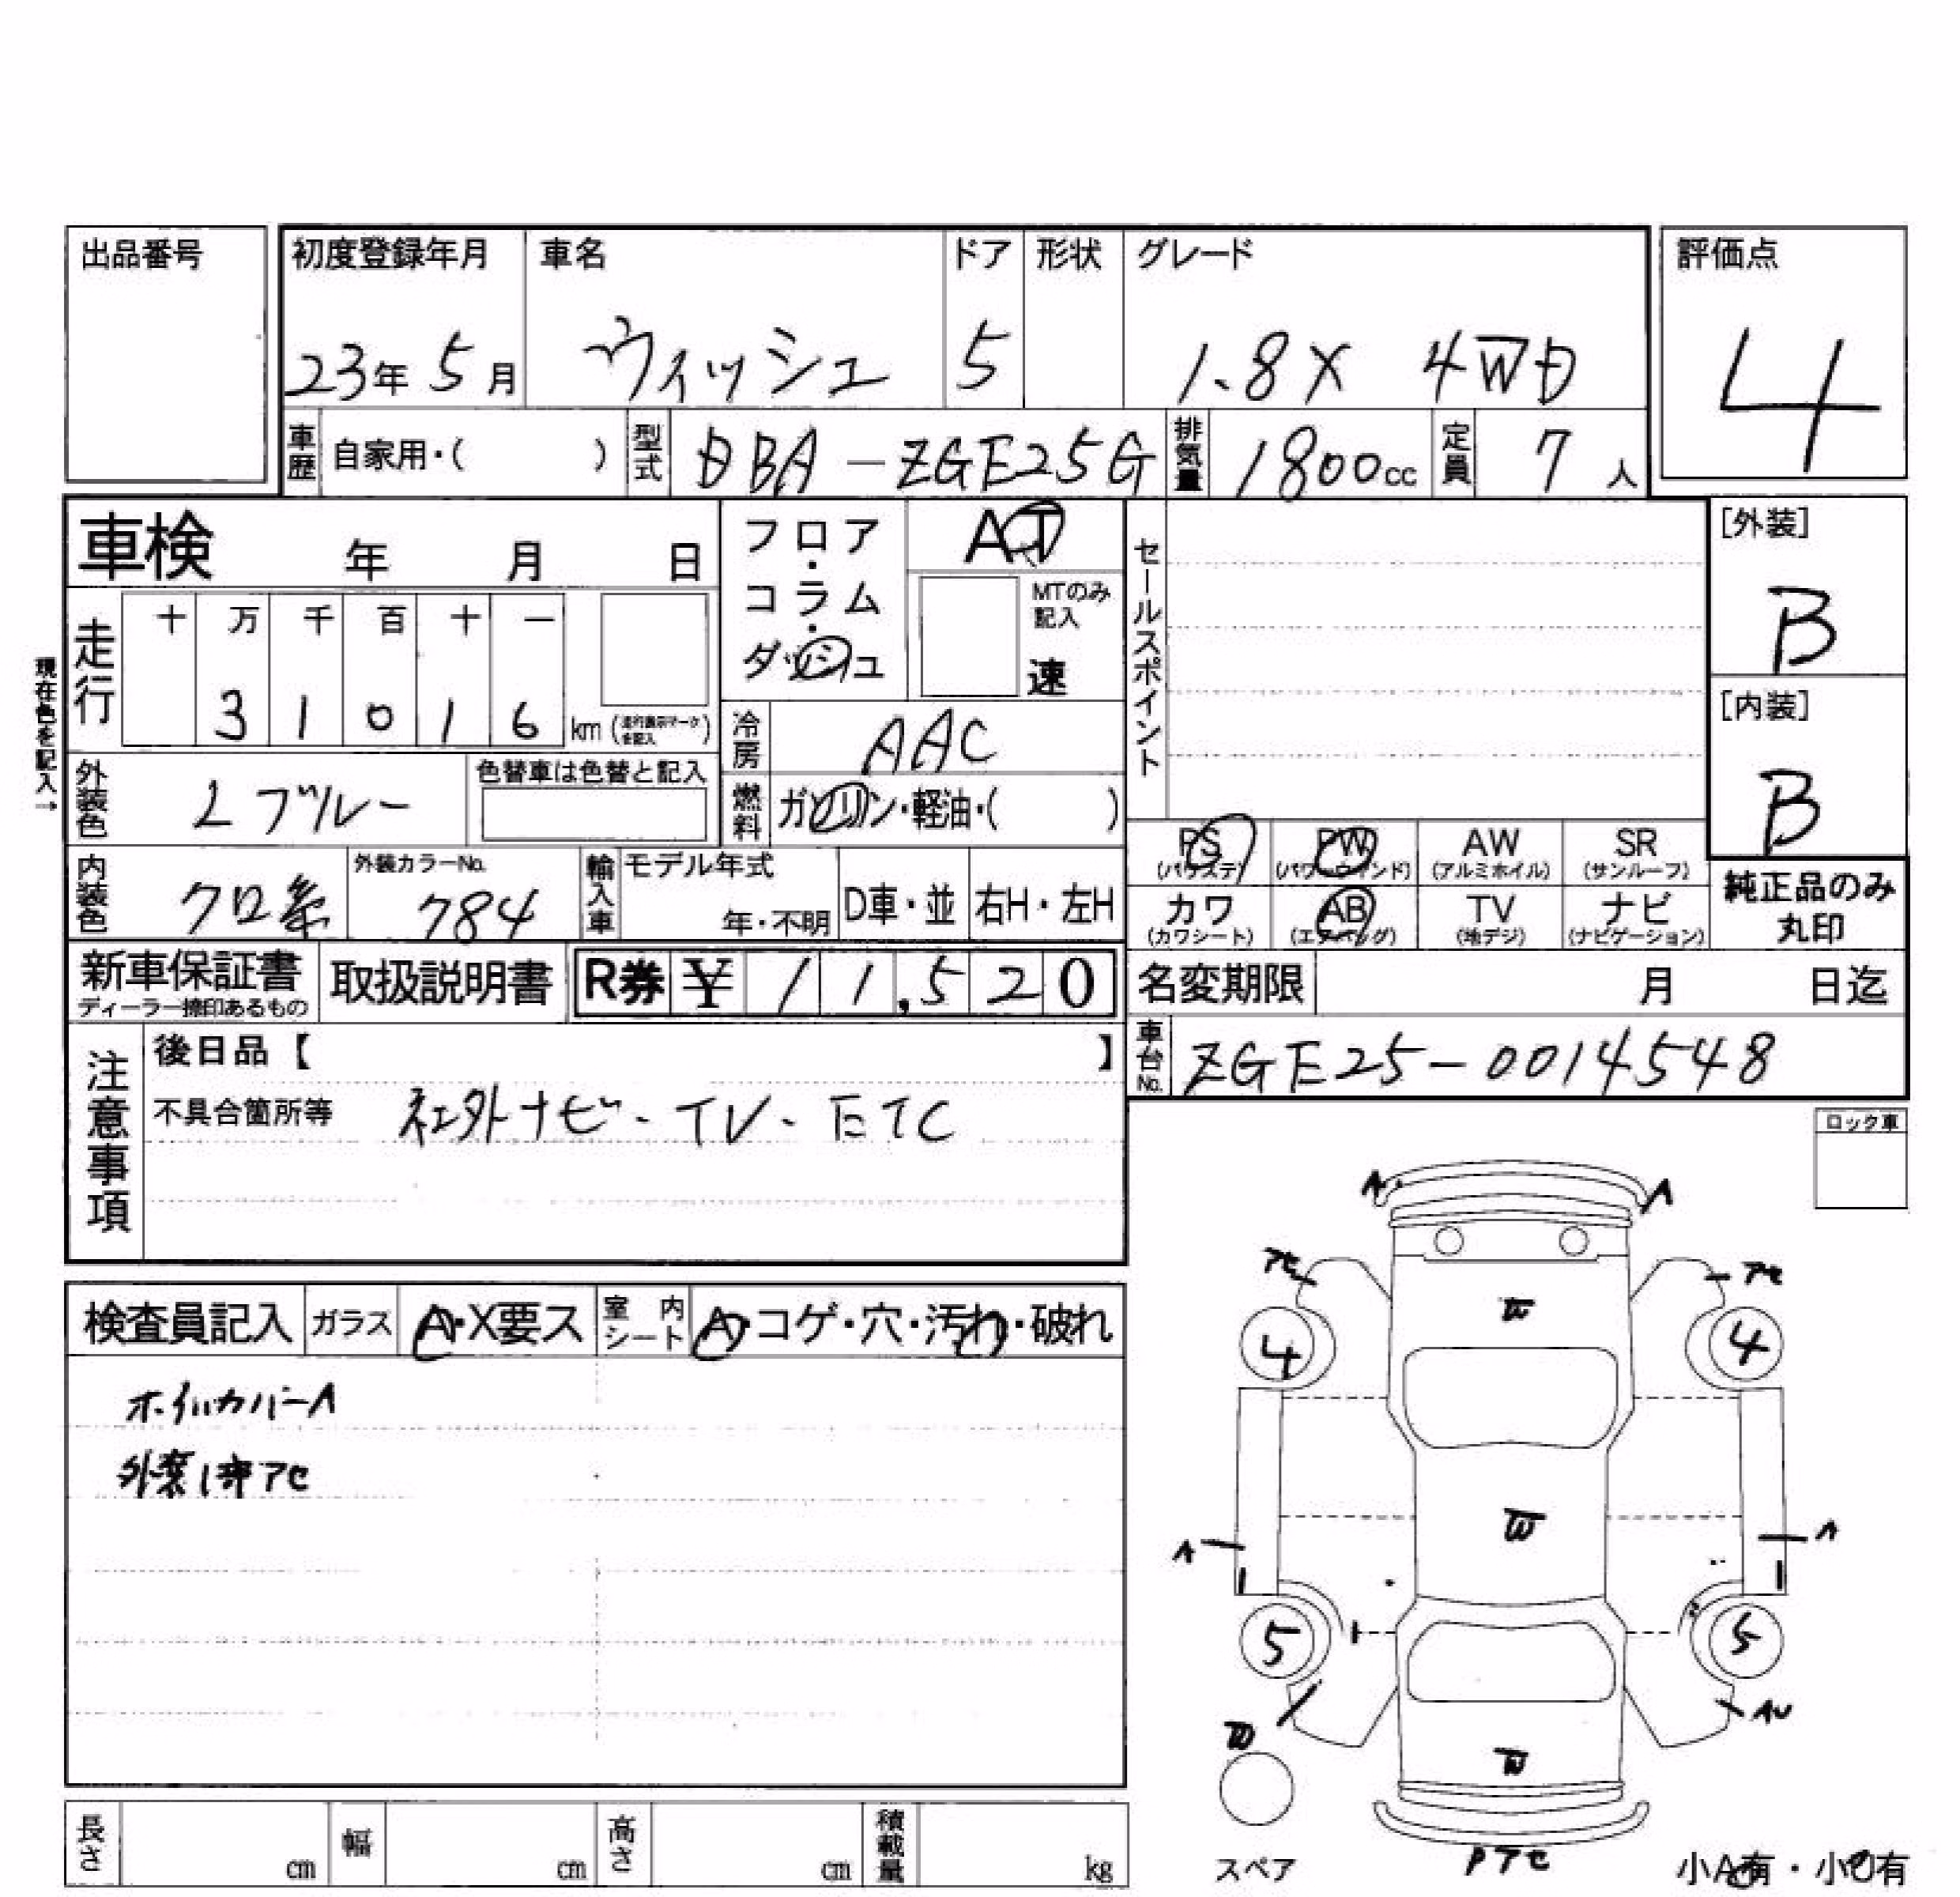 出品番号 初度登録年月 車名 ドア 形状 グレード 評価点
23年 5月 ヴィッシュ 5 1.8X 4WD 4
車歴 自家用・( ) 型式 DBA-ZGE25G 排気量 1800cc 定員 7人
車検 年 月 日
フロア・コラム・ダッシュ
AT
MTのみ記入
速
セールスポイント
[外装]
B
[内装]
B
現在色を記入→
走行 十 万 千 百 十 一
3 1 0 1 6 km (走行表示マークを記入)
冷房 AAC
外装色 Lブルー 色替車は色替と記入
燃料 ガソリン・軽油・( )
PS (パワステ) PW (パワーウィンド) AW (アルミホイル) SR (サンルーフ)
カワ (カワシート) AB (エアバッグ) TV (地デジ) ナビ (ナビゲーション)
純正品のみ丸印
内装色 クロ系 外装カラーNo. 784 輸入車 モデル年式 年・不明 D車・並 右H・左H
新車保証書 ディーラー捺印あるもの 取扱説明書 R券 ¥ 11,520
名変期限 月 日迄
車台No. ZGE25-0014548
注意事項
後日品【 】
不具合箇所等 社外ナビ・TV・ETC
ロック車
検査員記入 ガラス A・X要ス 室内シート A・コゲ・穴・汚れ・破れ
ホイルカバーA
A A
アセ アセ
W
4 4
W
A A
5 5
AU
W
W
Pアセ
スペア
小A有・小U有
長さ cm 幅 cm 高さ cm 積載量 kg